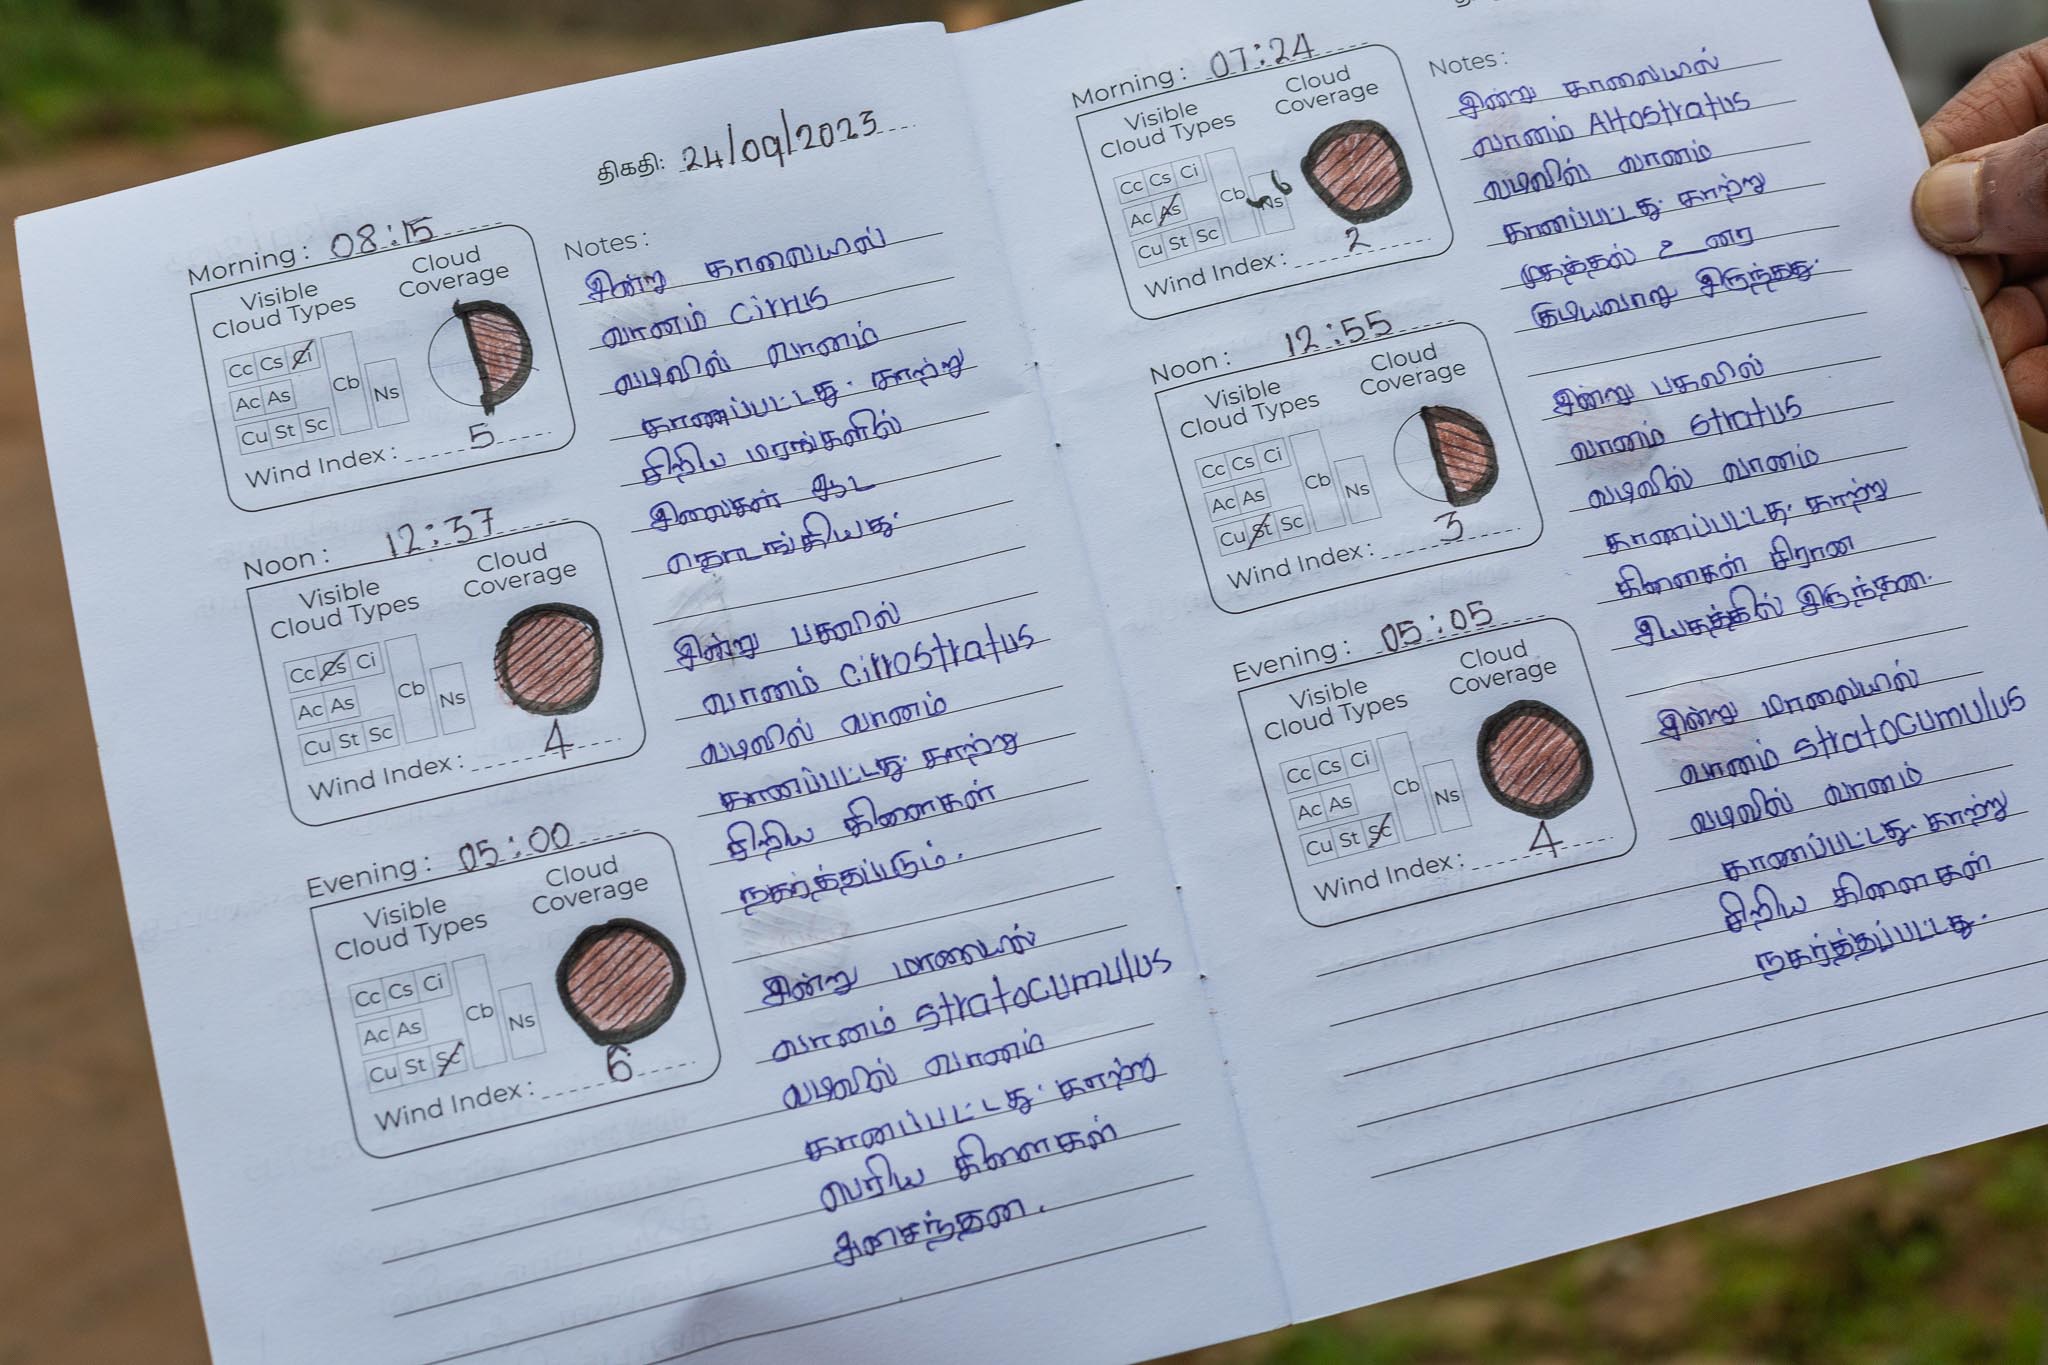 திகதி: 24/09/2023
Morning: 08:15
Visible Cloud Types
Cloud Coverage
Cc Cs Ci
Ac As
Cu St Sc
Cb
Ns
Wind Index: 5
Notes:
இன்று காலையில்
வானம் Cirrus
வடிவில் வானம்
காணப்பட்டது. காற்று
சிறிய மரங்களில்
இலைகள் ஆட
தொடங்கியது.
Noon: 12:37
Visible Cloud Types
Cloud Coverage
Cc Cs Ci
Ac As
Cu St Sc
Cb
Ns
Wind Index: 4
இன்று பகலில்
வானம் Cirrostratus
வடிவில் வானம்
காணப்பட்டது. காற்று
சிறிய கிளைகள்
நகர்த்தப்படும்.
Evening: 05:00
Visible Cloud Types
Cloud Coverage
Cc Cs Ci
Ac As
Cu St Sc
Cb
Ns
Wind Index: 6
இன்று மாலையில்
வானம் Stratocumulus
வடிவில் வானம்
காணப்பட்டது. காற்று
பெரிய கிளைகள்
அசைந்தன.
Morning: 07:24
Visible Cloud Types
Cloud Coverage
Cc Cs Ci
Ac As
Cu St Sc
Cb
Ns
Wind Index: 2
Notes:
இன்று காலையில்
வானம் Altostratus
வடிவில் வானம்
காணப்பட்டது. காற்று
முகத்தில் உணர
கூடியவாறு இருந்தது.
Noon: 12:55
Visible Cloud Types
Cloud Coverage
Cc Cs Ci
Ac As
Cu St Sc
Cb
Ns
Wind Index: 3
இன்று பகலில்
வானம் Stratus
வடிவில் வானம்
காணப்பட்டது. காற்று
கிளைகள் சீரான
இயக்கத்தில் இருந்தன.
Evening: 05:05
Visible Cloud Types
Cloud Coverage
Cc Cs Ci
Ac As
Cu St Sc
Cb
Ns
Wind Index: 4
இன்று மாலையில்
வானம் Stratocumulus
வடிவில் வானம்
காணப்பட்டது. காற்று
சிறிய கிளைகள்
நகர்த்தப்பட்டது.